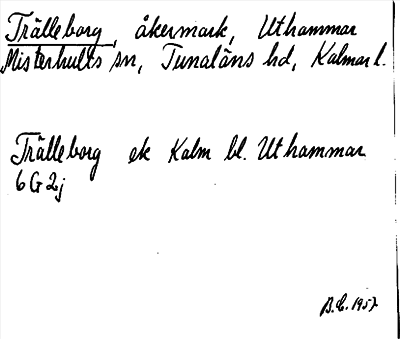 Trälleborg, åkermark, Uthammar
Misterhults sn, Tunaläns hd, Kalmar l.
Trälleborg ek Kalm bl. Uthammar
6 G 2j
B.E. 1957